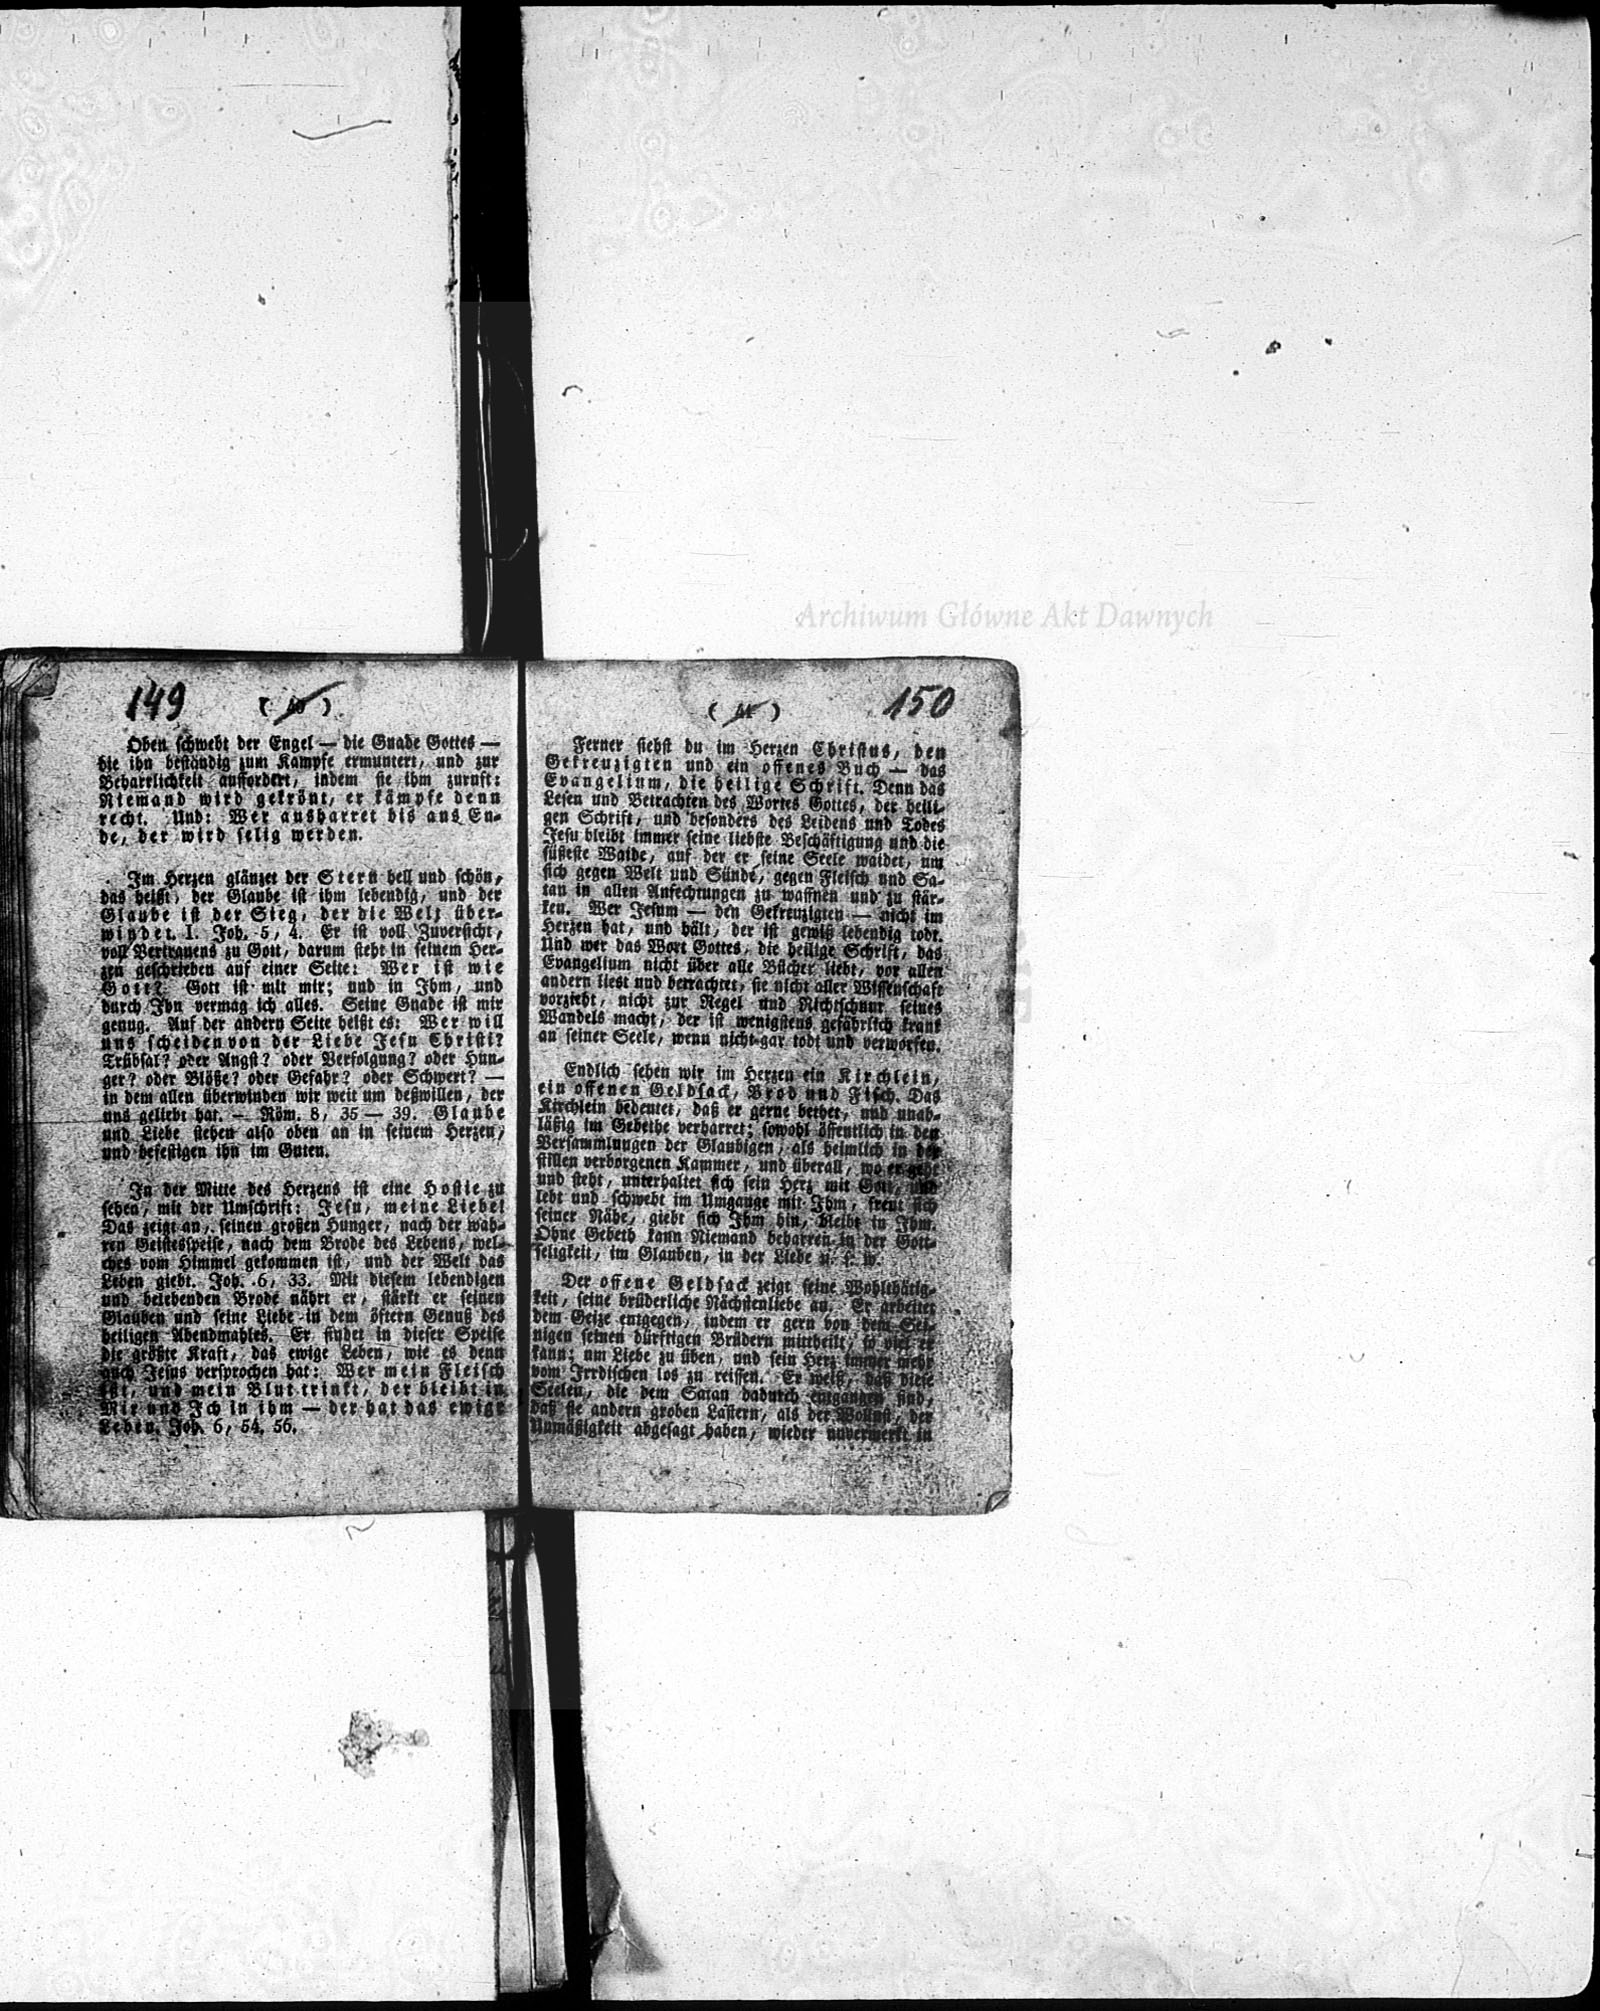 149
( 40 )
Oben schwebt der Engel — die Gnade Gottes —
die ihn beständig zum Kampfe ermuntert, und zur
Beharrlichkeit auffordert, indem sie ihm zuruft:
Niemand wird gekrönt, er kämpfe denn
recht. Und: Wer ausharret bis ans En-
de, der wird selig werden.
Im Herzen glänzet der Stern hell und schön,
das heißt, der Glaube ist ihm lebendig, und der
Glaube ist der Sieg, der die Welt über-
windet. I. Joh. 5, 4. Er ist voll Zuversicht,
voll Vertrauens zu Gott, darum steht in seinem Her-
zen geschrieben auf einer Seite: Wer ist wie
Gott? Gott ist mit mir; und in Ihm, und
durch Ihn vermag ich alles. Seine Gnade ist mir
genug. Auf der andern Seite heißt es: Wer will
uns scheiden von der Liebe Jesu Christi?
Trübsal? oder Angst? oder Verfolgung? oder Hun-
ger? oder Blöße? oder Gefahr? oder Schwert? —
in dem allen überwinden wir weit um deßwillen, der
uns geliebt hat. — Röm. 8, 35 — 39. Glaube
und Liebe stehen also oben an in seinem Herzen,
und befestigen ihn im Guten.
In der Mitte des Herzens ist eine Hostie zu
sehen, mit der Umschrift: Jesu, meine Liebe!
Das zeigt an, seinen großen Hunger, nach der wah-
ren Geistesspeise, nach dem Brode des Lebens, wel-
ches vom Himmel gekommen ist, und der Welt das
Leben giebt. Joh. 6, 33. Mit diesem lebendigen
und belebenden Brode nährt er, stärkt er seinen
Glauben und seine Liebe in dem öftern Genuß des
heiligen Abendmahles. Er findet in dieser Speise
die größte Kraft, das ewige Leben, wie es denn
auch Jesus versprochen hat: Wer mein Fleisch
ißt, und mein Blut trinkt, der bleibt in
Mir und Ich in ihm — der hat das ewige
Leben. Joh. 6, 54. 56.
150
( 41 )
Ferner siehst du im Herzen Christus, den
Gekreuzigten und ein offenes Buch — das
Evangelium, die heilige Schrift. Denn das
Lesen und Betrachten des Wortes Gottes, der heili-
gen Schrift, und besonders des Leidens und Todes
Jesu bleibt immer seine liebste Beschäftigung und die
süßeste Waide, auf der er seine Seele waidet, um
sich gegen Welt und Sünde, gegen Fleisch und Sa-
tan in allen Anfechtungen zu waffnen und zu stär-
ken. Wer Jesum — den Gekreuzigten — nicht im
Herzen hat, und hält, der ist gewiß lebendig todt.
Und wer das Wort Gottes, die heilige Schrift, das
Evangelium nicht über alle Bücher liebt, vor allen
andern liest und betrachtet, sie nicht aller Wissenschaft
vorzieht, nicht zur Regel und Richtschnur seines
Wandels macht, der ist wenigstens gefährlich krank
an seiner Seele, wenn nicht gar todt und verworfen.
Endlich sehen wir im Herzen ein Kirchlein,
ein offenen Geldsack, Brod und Fisch. Das
Kirchlein bedeutet, daß er gerne bethet, und unab-
läßig im Gebethe verharret; sowohl öffentlich in den
Versammlungen der Glaubigen, als heimlich in der
stillen verborgenen Kammer, und überall, wo er geht
und steht, unterhaltet sich sein Herz mit Gott, und
lebt und schwebt im Umgange mit Ihm, freut sich
seiner Nähe, giebt sich Ihm hin, bleibt in Ihm.
Ohne Gebeth kann Niemand beharren in der Gott-
seligkeit, im Glauben, in der Liebe u. s. w.
Der offene Geldsack zeigt seine Wohlthätig-
keit, seine brüderliche Nächstenliebe an. Er arbeitet
dem Geize entgegen, indem er gern von dem Sei-
nigen seinen dürftigen Brüdern mittheilt, so viel er
kann; um Liebe zu üben, und sein Herz immer mehr
vom Irrdischen los zu reissen. Er weiß, daß diese
Seelen, die dem Satan dadurch entgangen sind,
daß sie andern groben Lastern, als der Wollust, der
Unmäßigkeit abgesagt haben, wieder unvermerkt in
Archiwum Główne Akt Dawnych